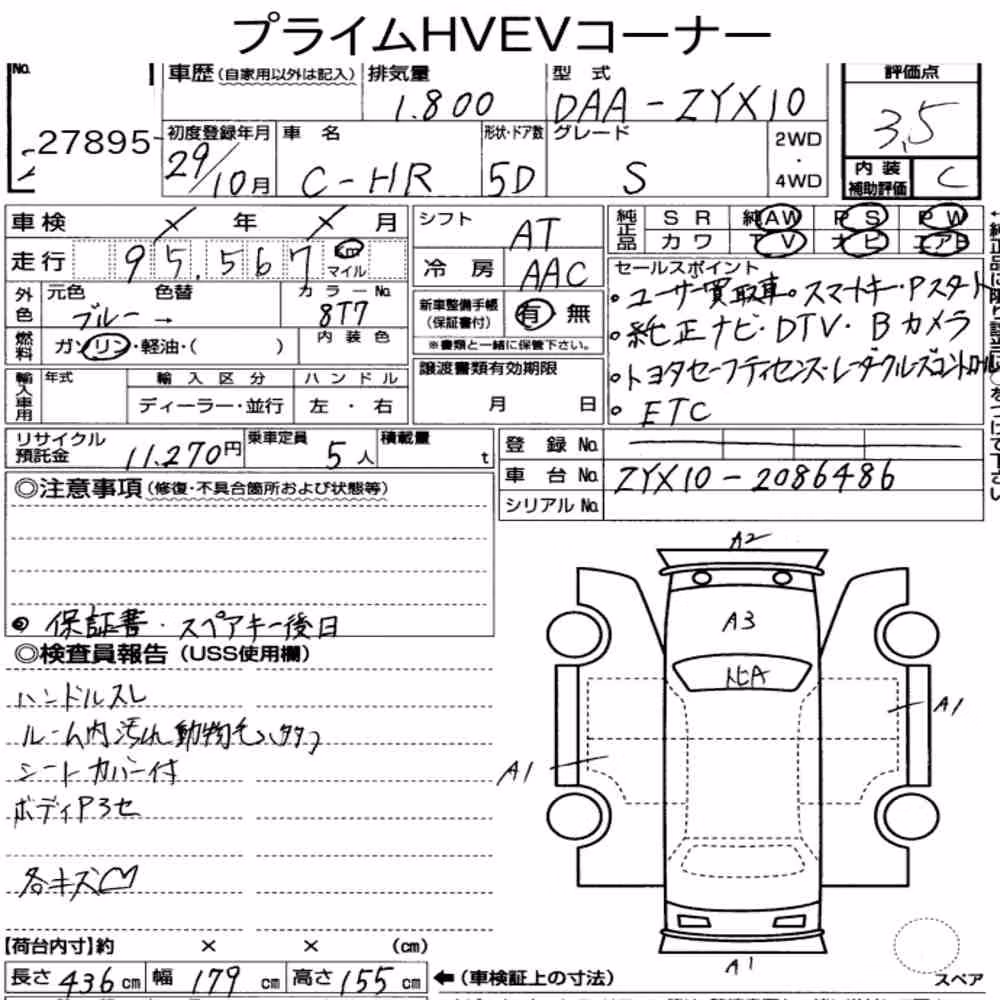 プライムHVEVコーナー
No. 27895-
車歴(自家用以外は記入) 排気量 1.800 型式 DAA-ZYX10 評価点 3.5
初度登録年月 29/10月 車名 C-HR 形状・ドア数 5D グレード S 2WD・4WD 内装補助評価 C
車検 × 年 × 月 シフト AT
走行 95.567 km マイル 冷房 AAC
純正品 SR 純AW PS PW
カワ TV ナビ エアB
外色 元色 ブルー → 色替 カラーNo. 8T7
新車整備手帳(保証書付) 有 無
※書類と一緒に保管下さい。
燃料 ガソリン・軽油・( ) 内装色
輸入車用 年式 輸入区分 ハンドル
ディーラー・並行 左・右
譲渡書類有効期限
月 日
セールスポイント
。ユーザー買取車。スマートキー・Pスタート
。純正ナビ・DTV・Bカメラ
。トヨタセーフティセンス・レーダクルーズコントロール
。ETC
リサイクル預託金 11.270円 乗車定員 5人 積載量 t
登録No.
車台No. ZYX10-2086486
シリアルNo.
◎注意事項(修復・不具合箇所および状態等)
保証書・スペアキー後日
◎検査員報告(USS使用欄)
ハンドルスレ
ルーム内汚れ 動物毛
シートカバー付
ボディP3セ
各キズ凹
A2
A3
トビA
A1
A1
A1
【荷台内寸】約 × × (cm)
長さ 436cm 幅 179cm 高さ 155cm ←(車検証上の寸法)
スペア